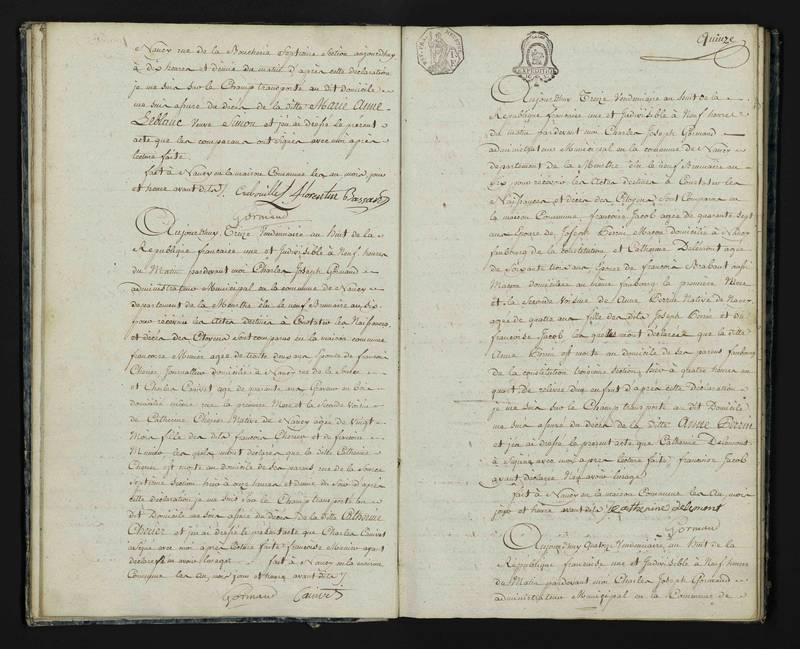 Nancy rue de la Boucherie Septieme Section aujourdhuy
à dix heures et demie du matin d'après cette déclaration
je me suis sur le Champ transporté au dit domicile
me suis assuré du décès de la ditte Marie Anne
Leblanc veuve Simon et j'ai dressé le présent
acte que les comparans ont signés avec moi après
lecture faite
fait à Nancy en la maison Commune les an, mois jour
et heure avant dits
florentin
Gormand
Aujourdhuy Treize Vendemiaire an huit de la
Republique francaise une et Indivisible à Neuf heures
du Matin pardevant moi Charles Joseph Gormand
administrateur Municipal en la commune de Nancy
departement de la Meurthe élu le neuf Brumaire an Six
pour recevoir les Actes destinés à Constater les Naissances
et décès des Citoyens sont comparus en la maison commune
francoise Munier agée de trente deux ans Epouse de francois
Journallier domicilié à Nancy rue de la Source
et Charles agé de ans
domicilié même rue la premiere Mere et le Second Voisin
de Catherine Native de Nancy agée de Vingt
Mois fille des dits francois et de francoise
Munier les quels m'ont déclarés que la ditte Catherine
est morte au domicile de ses parens rue de la Source
Septieme Section hier à onze heures et demie du Soir d'après
cette déclaration je me suis sur le Champ transporté au
dit Domicile me suis assuré du décès de la ditte Catherine
et j'ai dressé le présent acte que Charles
a signé avec moi après lecture faite francoise Munier ayant
déclaré n'en avoir l'usage fait à Nancy en la maison
Commune les an, mois jour et heure avant dits
Gormand
Quinze
Aujourdhuy Treize Vendemiaire an huit de la
Republique francaise une et Indivisible à Neuf heures
du matin pardevant moi Charles Joseph Gormand
administrateur Municipal en la commune de Nancy
departement de la Meurthe élu le neuf Brumaire an
Six pour recevoir les Actes destinés à Constater les
Naissances et décès des Citoyens sont Comparus en
la maison Commune, francoise Jacob agée de quarante Sept
ans Epouse de Joseph Macon domicilié à Nancy
faubourg de la Constitution et Catherine Delemont agée
de Soixante trois ans Epouse de francois aussi
Macon domiciliée au même faubourg la premiere Mere
et la Seconde Voisine de Anne Native de Nancy
agée de quatre ans fille des dits Joseph et de
francoise Jacob les quelles m'ont déclarées que la ditte
Anne est morte au domicile de ses parens faubourg
de la constitution Section, hier à quatre heures un
quart de relevée d'après cette Déclaration
je me suis sur le Champ transporté au dit Domicile
me suis assuré du décès de la ditte Anne
et j'ai dressé le present acte que Catherine Delemont
a Signé avec moi après lecture faite, francoise Jacob
ayant declaré n'en avoir l'usage
fait à Nancy en la maison Commune les an, mois
jour et heure avant dits Katherine delemont
Gormand
Aujourdhuy Quatorze Vendemiaire, an huit de la
Republique francaise une et Indivisible à Neuf heures
du Matin pardevant moi Charles Joseph Gormand
administrateur Municipal en la Commune de